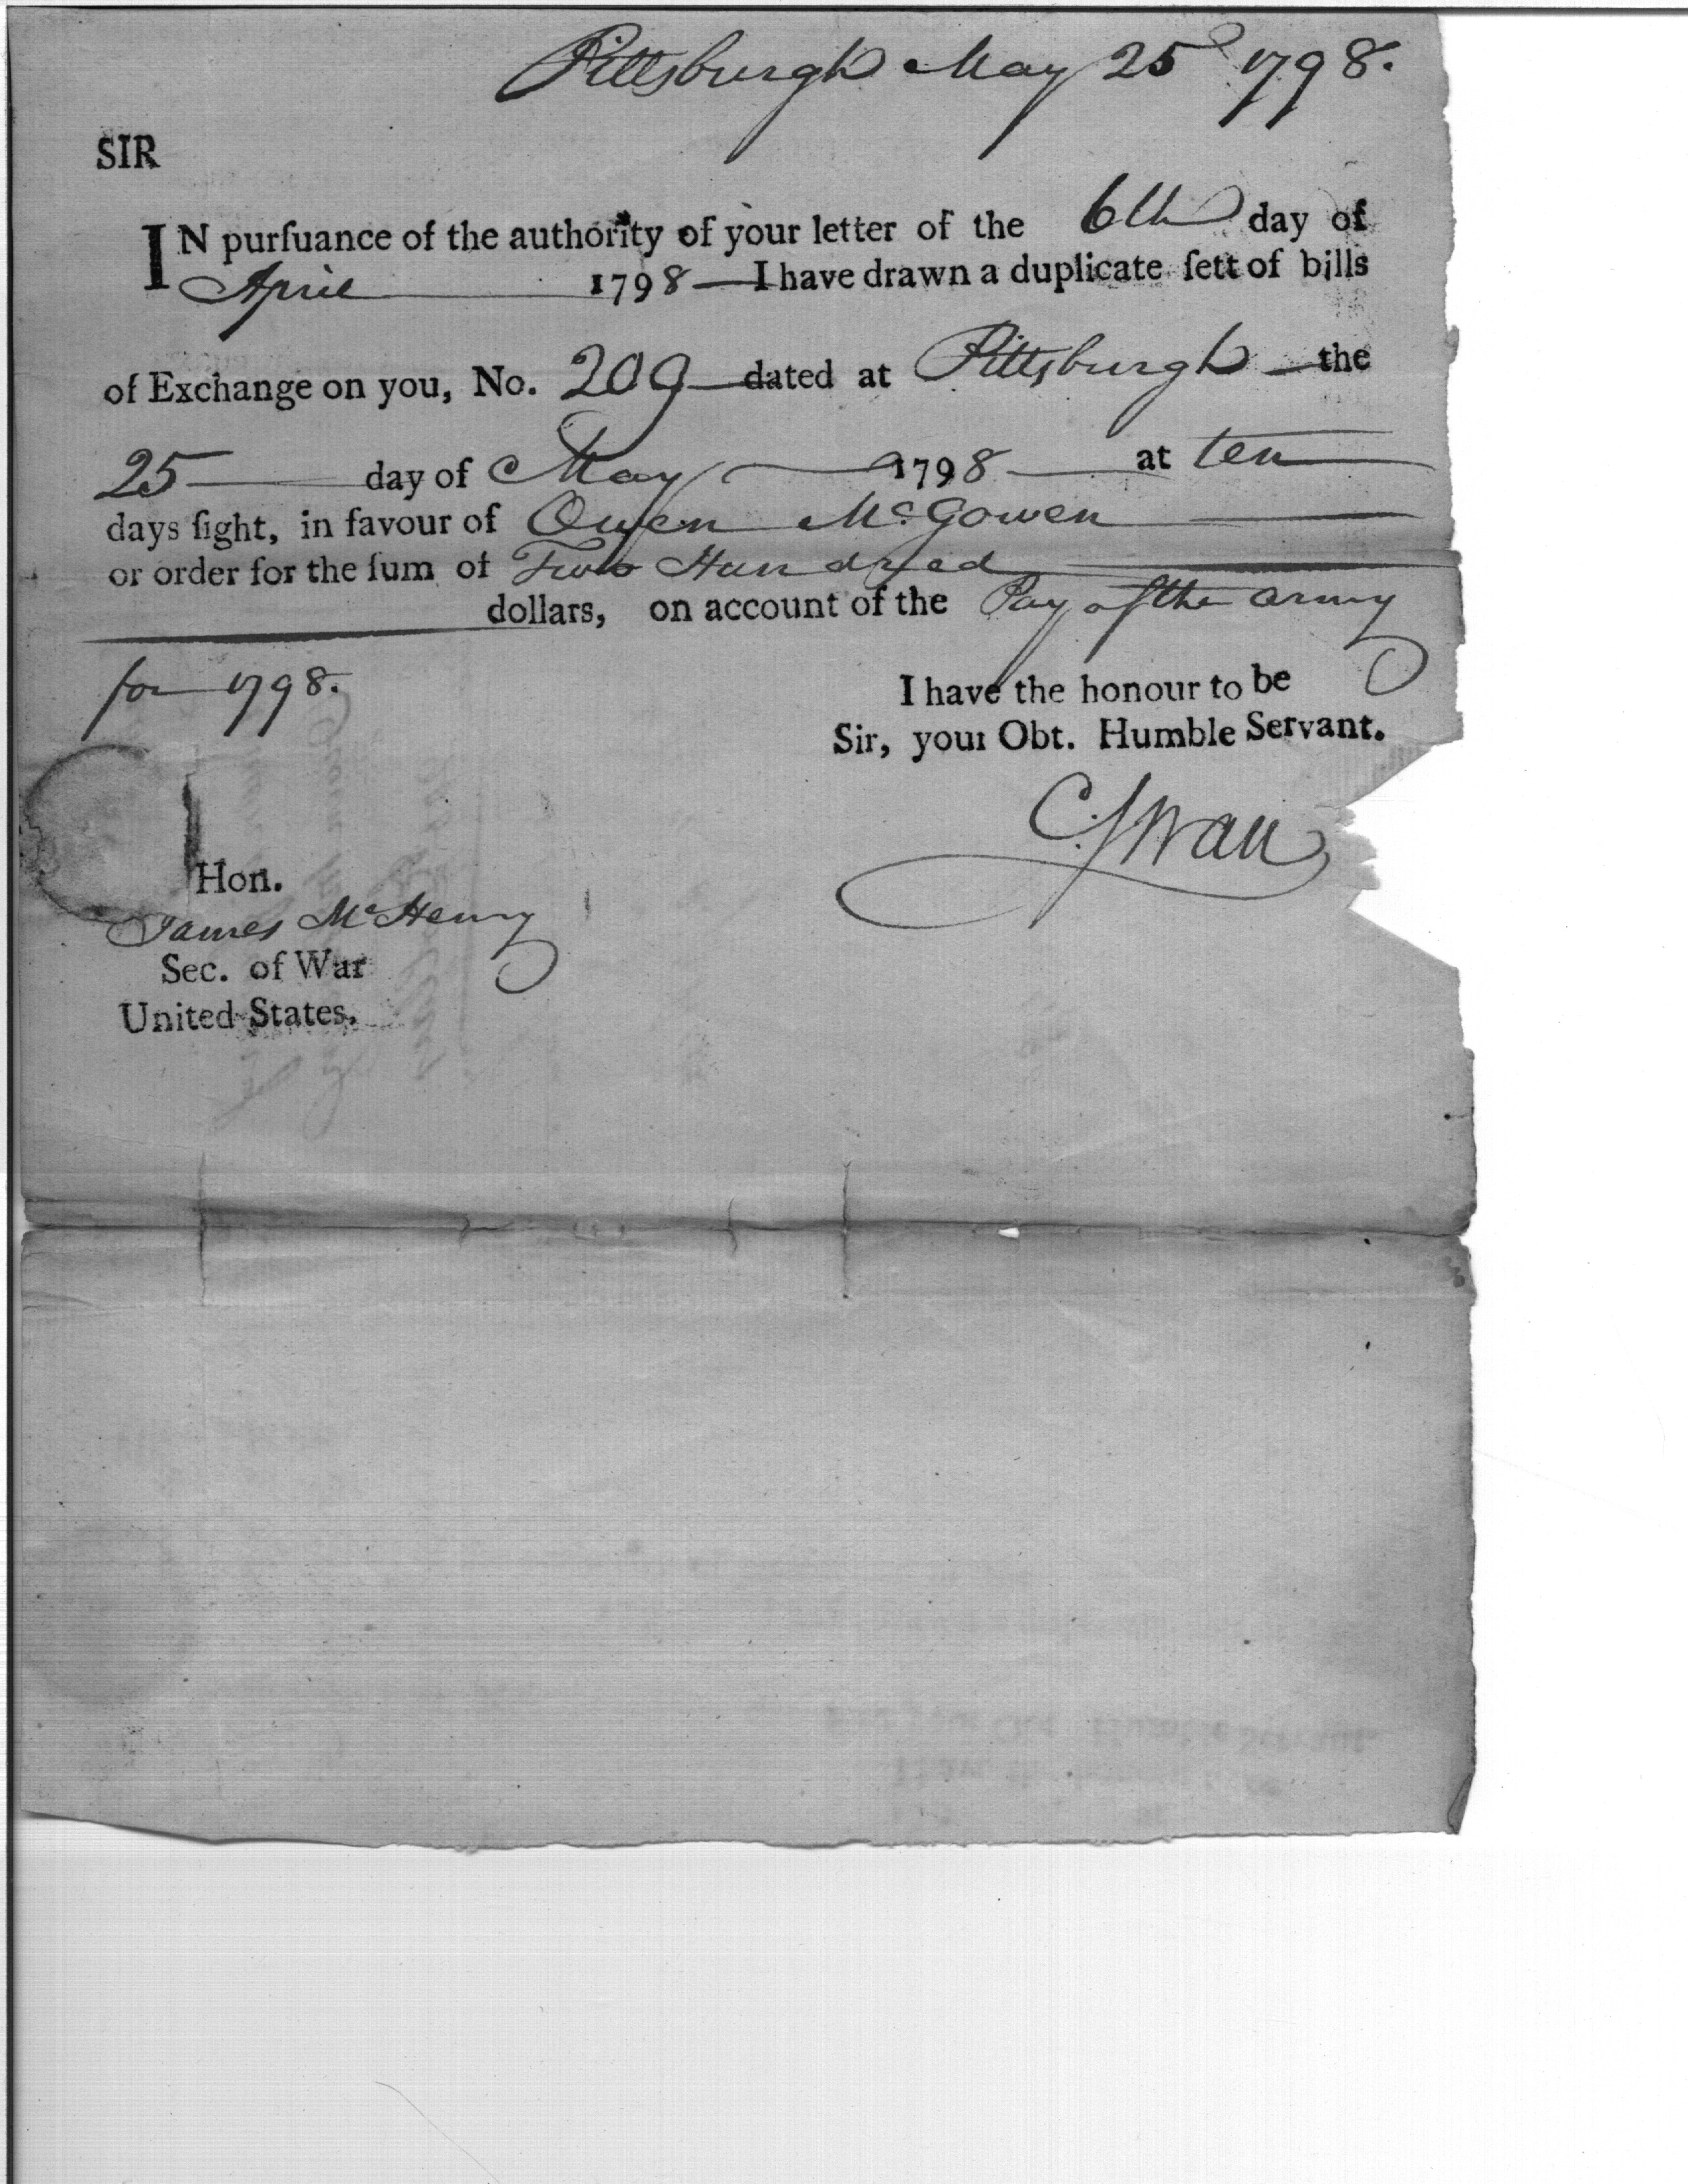 Pittsburgh May 25th 1798.
SIR
IN purſuance of the authority of your letter of the 6th day of
April 1798 — I have drawn a duplicate ſett of bills
of Exchange on you, No. 209 dated at Pittsburgh the
25 day of May 1798 at ten
days ſight, in favour of Owen McGowen
or order for the ſum of Two Hundred
dollars, on account of the Pay of the army
for 1798.
I have the honour to be
Sir, your Obt. Humble Servant.
C. Swan
Hon.
James McHenry
Sec. of War
United States.